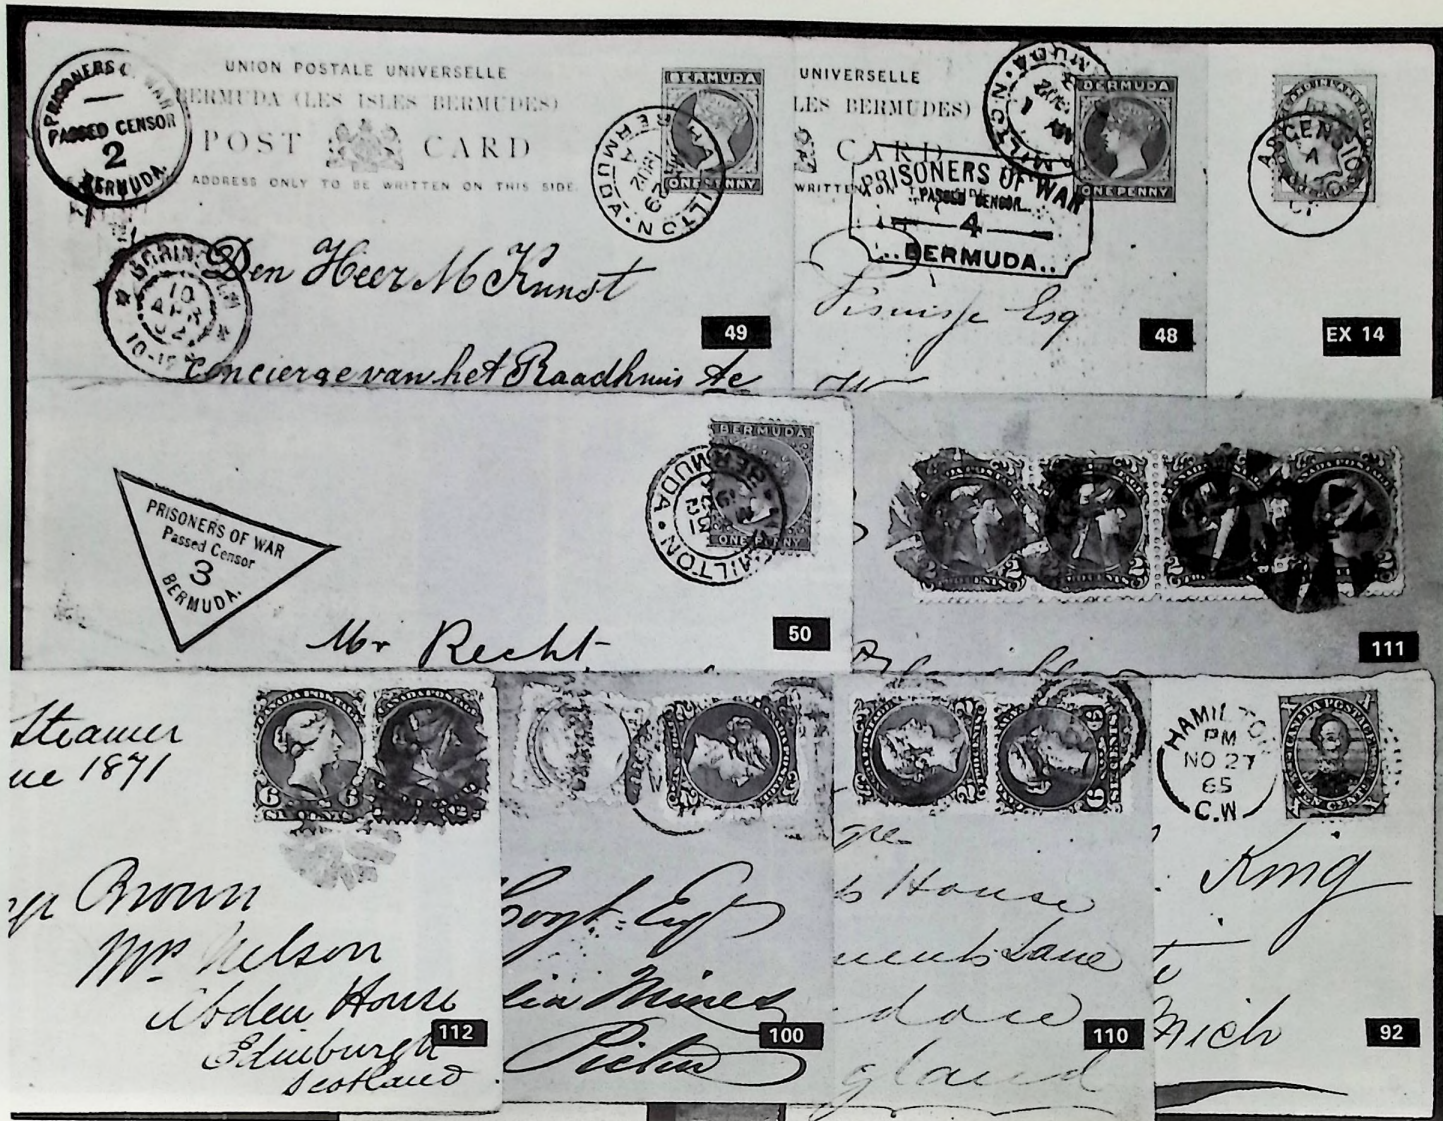 PRISONERS OF WAR
PASSED CENSOR
2
BERMUDA.
UNION POSTALE UNIVERSELLE
BERMUDA (LES ISLES BERMUDES)
POST CARD
ADDRESS ONLY TO BE WRITTEN ON THIS SIDE.
BERMUDA
ONE PENNY
HAMILTON
BERMUDA
29
10
APR
02
Den Heer M Kunst
Concierge van het Raadhuis te
49
UNIVERSELLE
LES BERMUDES)
CARD
WRITTEN ON
BERMUDA
ONE PENNY
PRISONERS OF WAR
PASSED CENSOR
4
BERMUDA
Esq
48
ASCENSION
A
EX 14
PRISONERS OF WAR
Passed Censor
3
BERMUDA.
BERMUDA
ONE PENNY
MILTON
BERMUDA
31
Mr Recht
50
2 2 2 2
111
Steamer
ne 1871
6 6
SIX CENTS
Brown
Mrs Nelson
Abden House
Edinburgh
Scotland
112
Esq
Mines
Pictou
100
House
Lane
gland
110
HAMILTON
PM
NO 27
65
C.W
CANADA POSTAGE
King
Mich
92